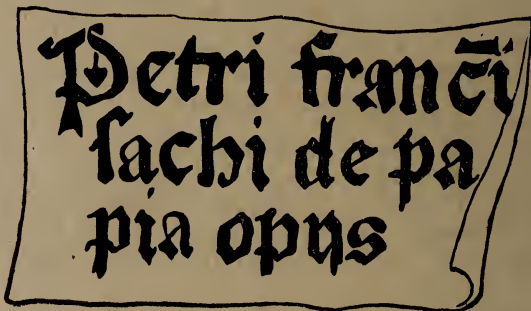 Petri franc̄i
ſachi de pa
pia opus